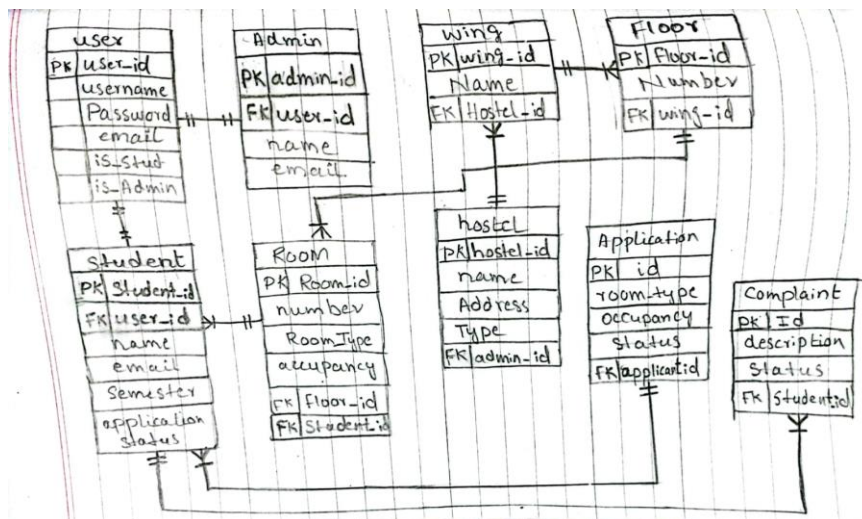 user
PK user_id
username
Password
email
is_Stud
is_Admin
Admin
PK admin_id
FK user_id
name
email
Wing
PK wing_id
Name
FK Hostel_id
Floor
PK Floor_id
Number
FK wing_id
Student
PK Student_id
FK user_id
name
email
Semester
application
status
Room
PK Room_id
number
RoomType
occupancy
FK Floor_id
FK Student_id
hostel
PK hostel_id
name
Address
Type
FK admin_id
Application
PK id
room_type
occupancy
Status
FK applicantid
Complaint
PK Id
description
Status
FK Studentid